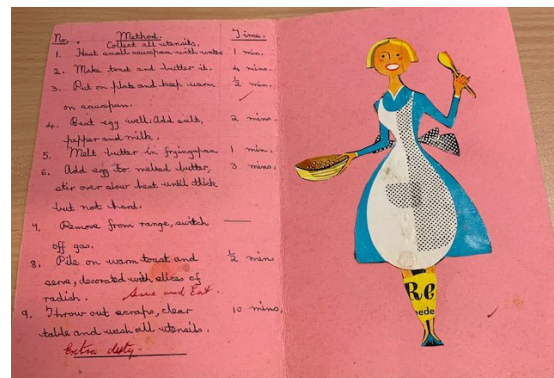 No. Method. Time.
Collect all utensils.
1. Heat small saucepan with water 1 min.
2. Make toast and butter it. 4 mins.
3. Put on plate and keep warm ½ min.
on saucepan.
4. Beat egg well. Add salt, 2 mins.
pepper and milk.
5. Melt butter in fryingpan 1 min.
6. Add egg to melted butter, 3 mins.
stir over slow heat until thick
but not hard.
7. Remove from range, switch
off gas.
8. Pile on warm toast and ½ min.
serve, decorated with slices of
radish. Serve and Eat.
9. Throw out scraps, clear 10 mins.
table and wash all utensils.
Extra duty.
Re
ede